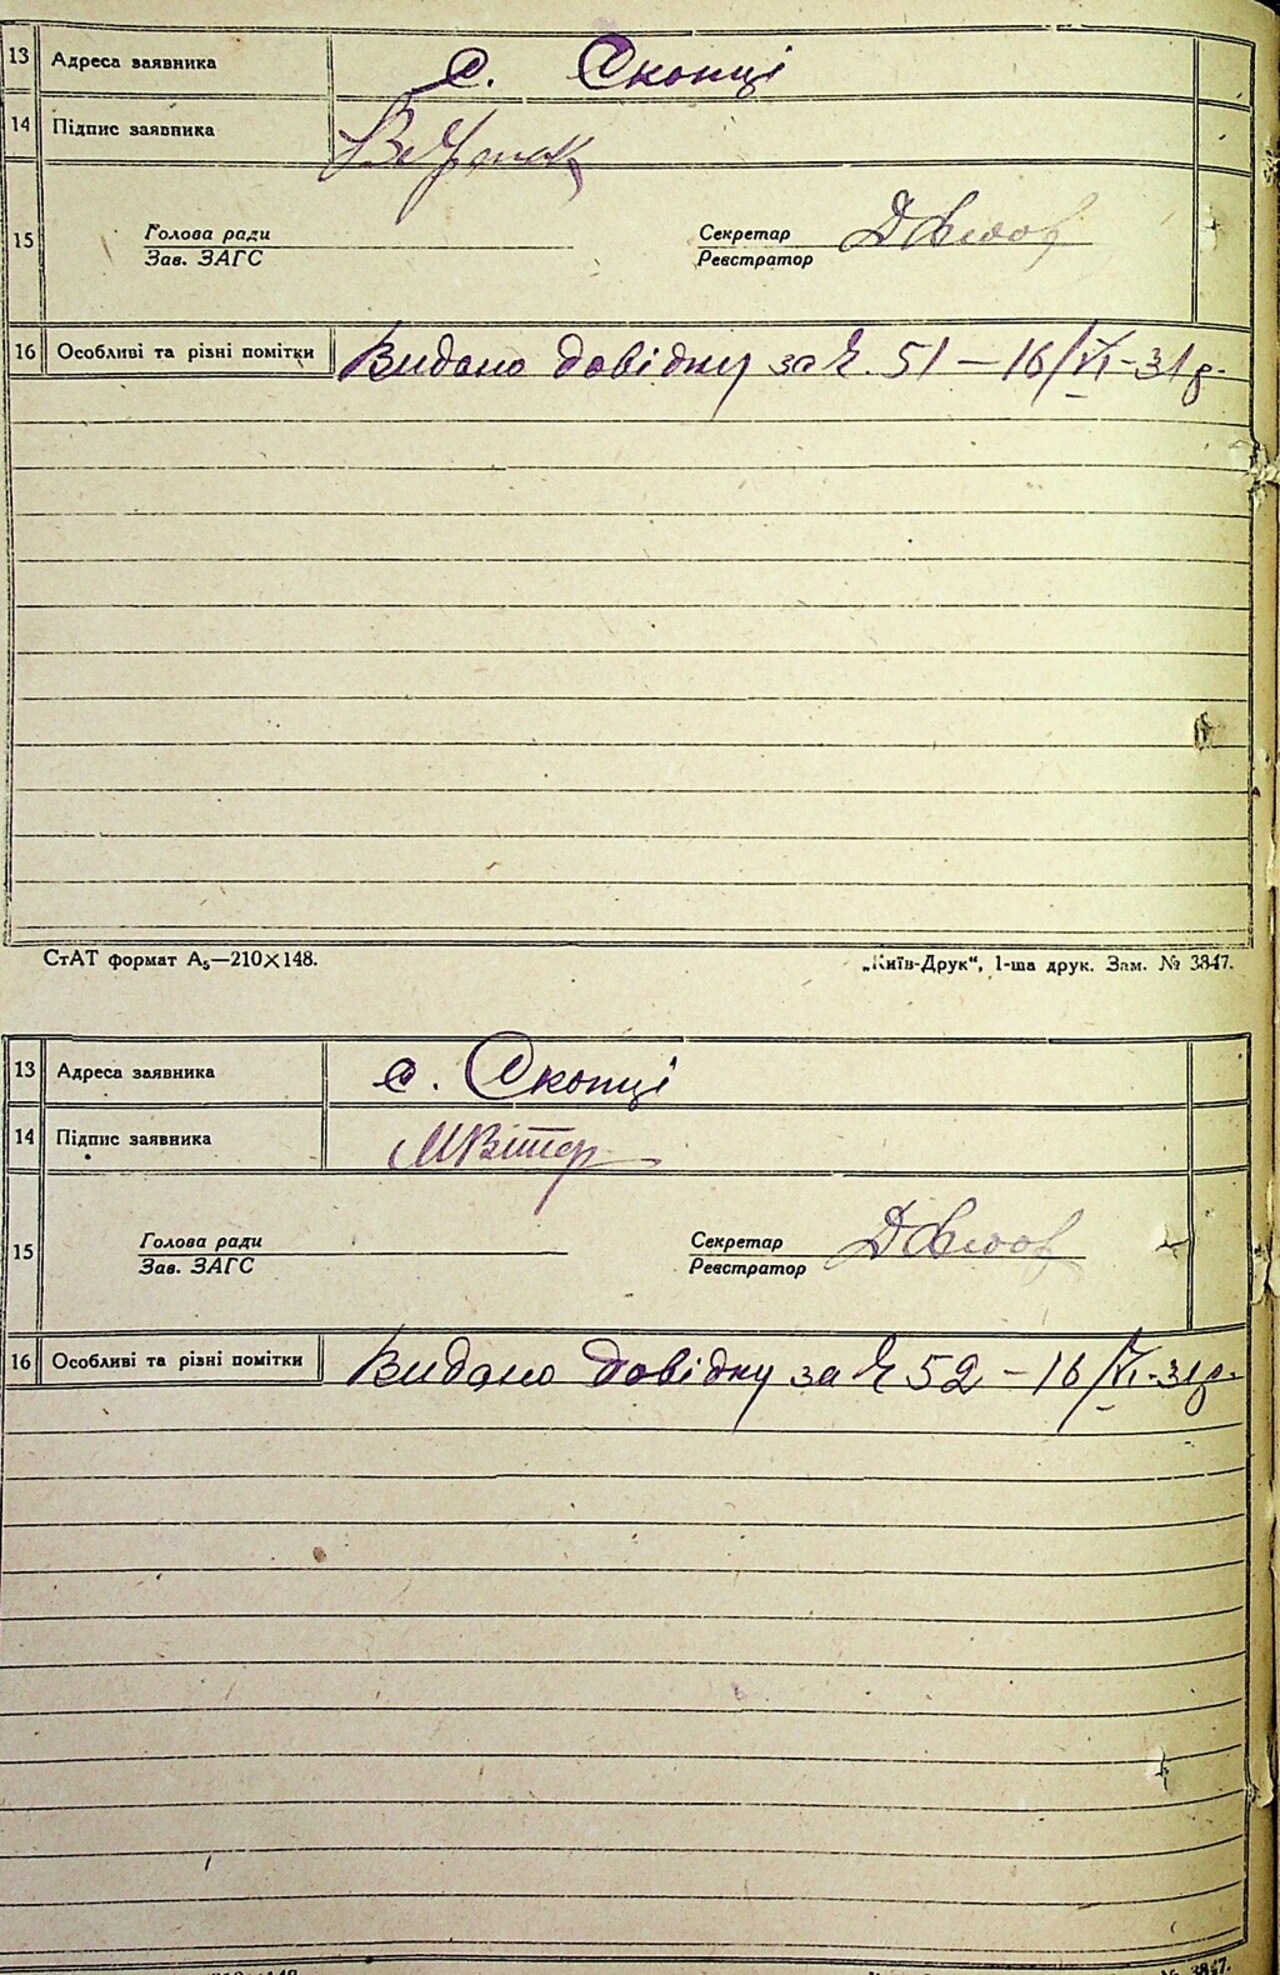 13 Адреса заявника с. Скопці
14 Підпис заявника
15 Голова ради Секретар
Зав. ЗАГС Реєстратор
16 Особливі та різні помітки Видано довідку за № 51 – 16/VI-31 р.
СтАТ формат А₅—210×148. „Київ-Друк“, 1-ша друк. Зам. № 3847.
13 Адреса заявника с. Скопці
14 Підпис заявника МВітер
15 Голова ради Секретар
Зав. ЗАГС Реєстратор
16 Особливі та різні помітки Видано довідку за № 52 – 16/VI-31 р.
№ 3847.